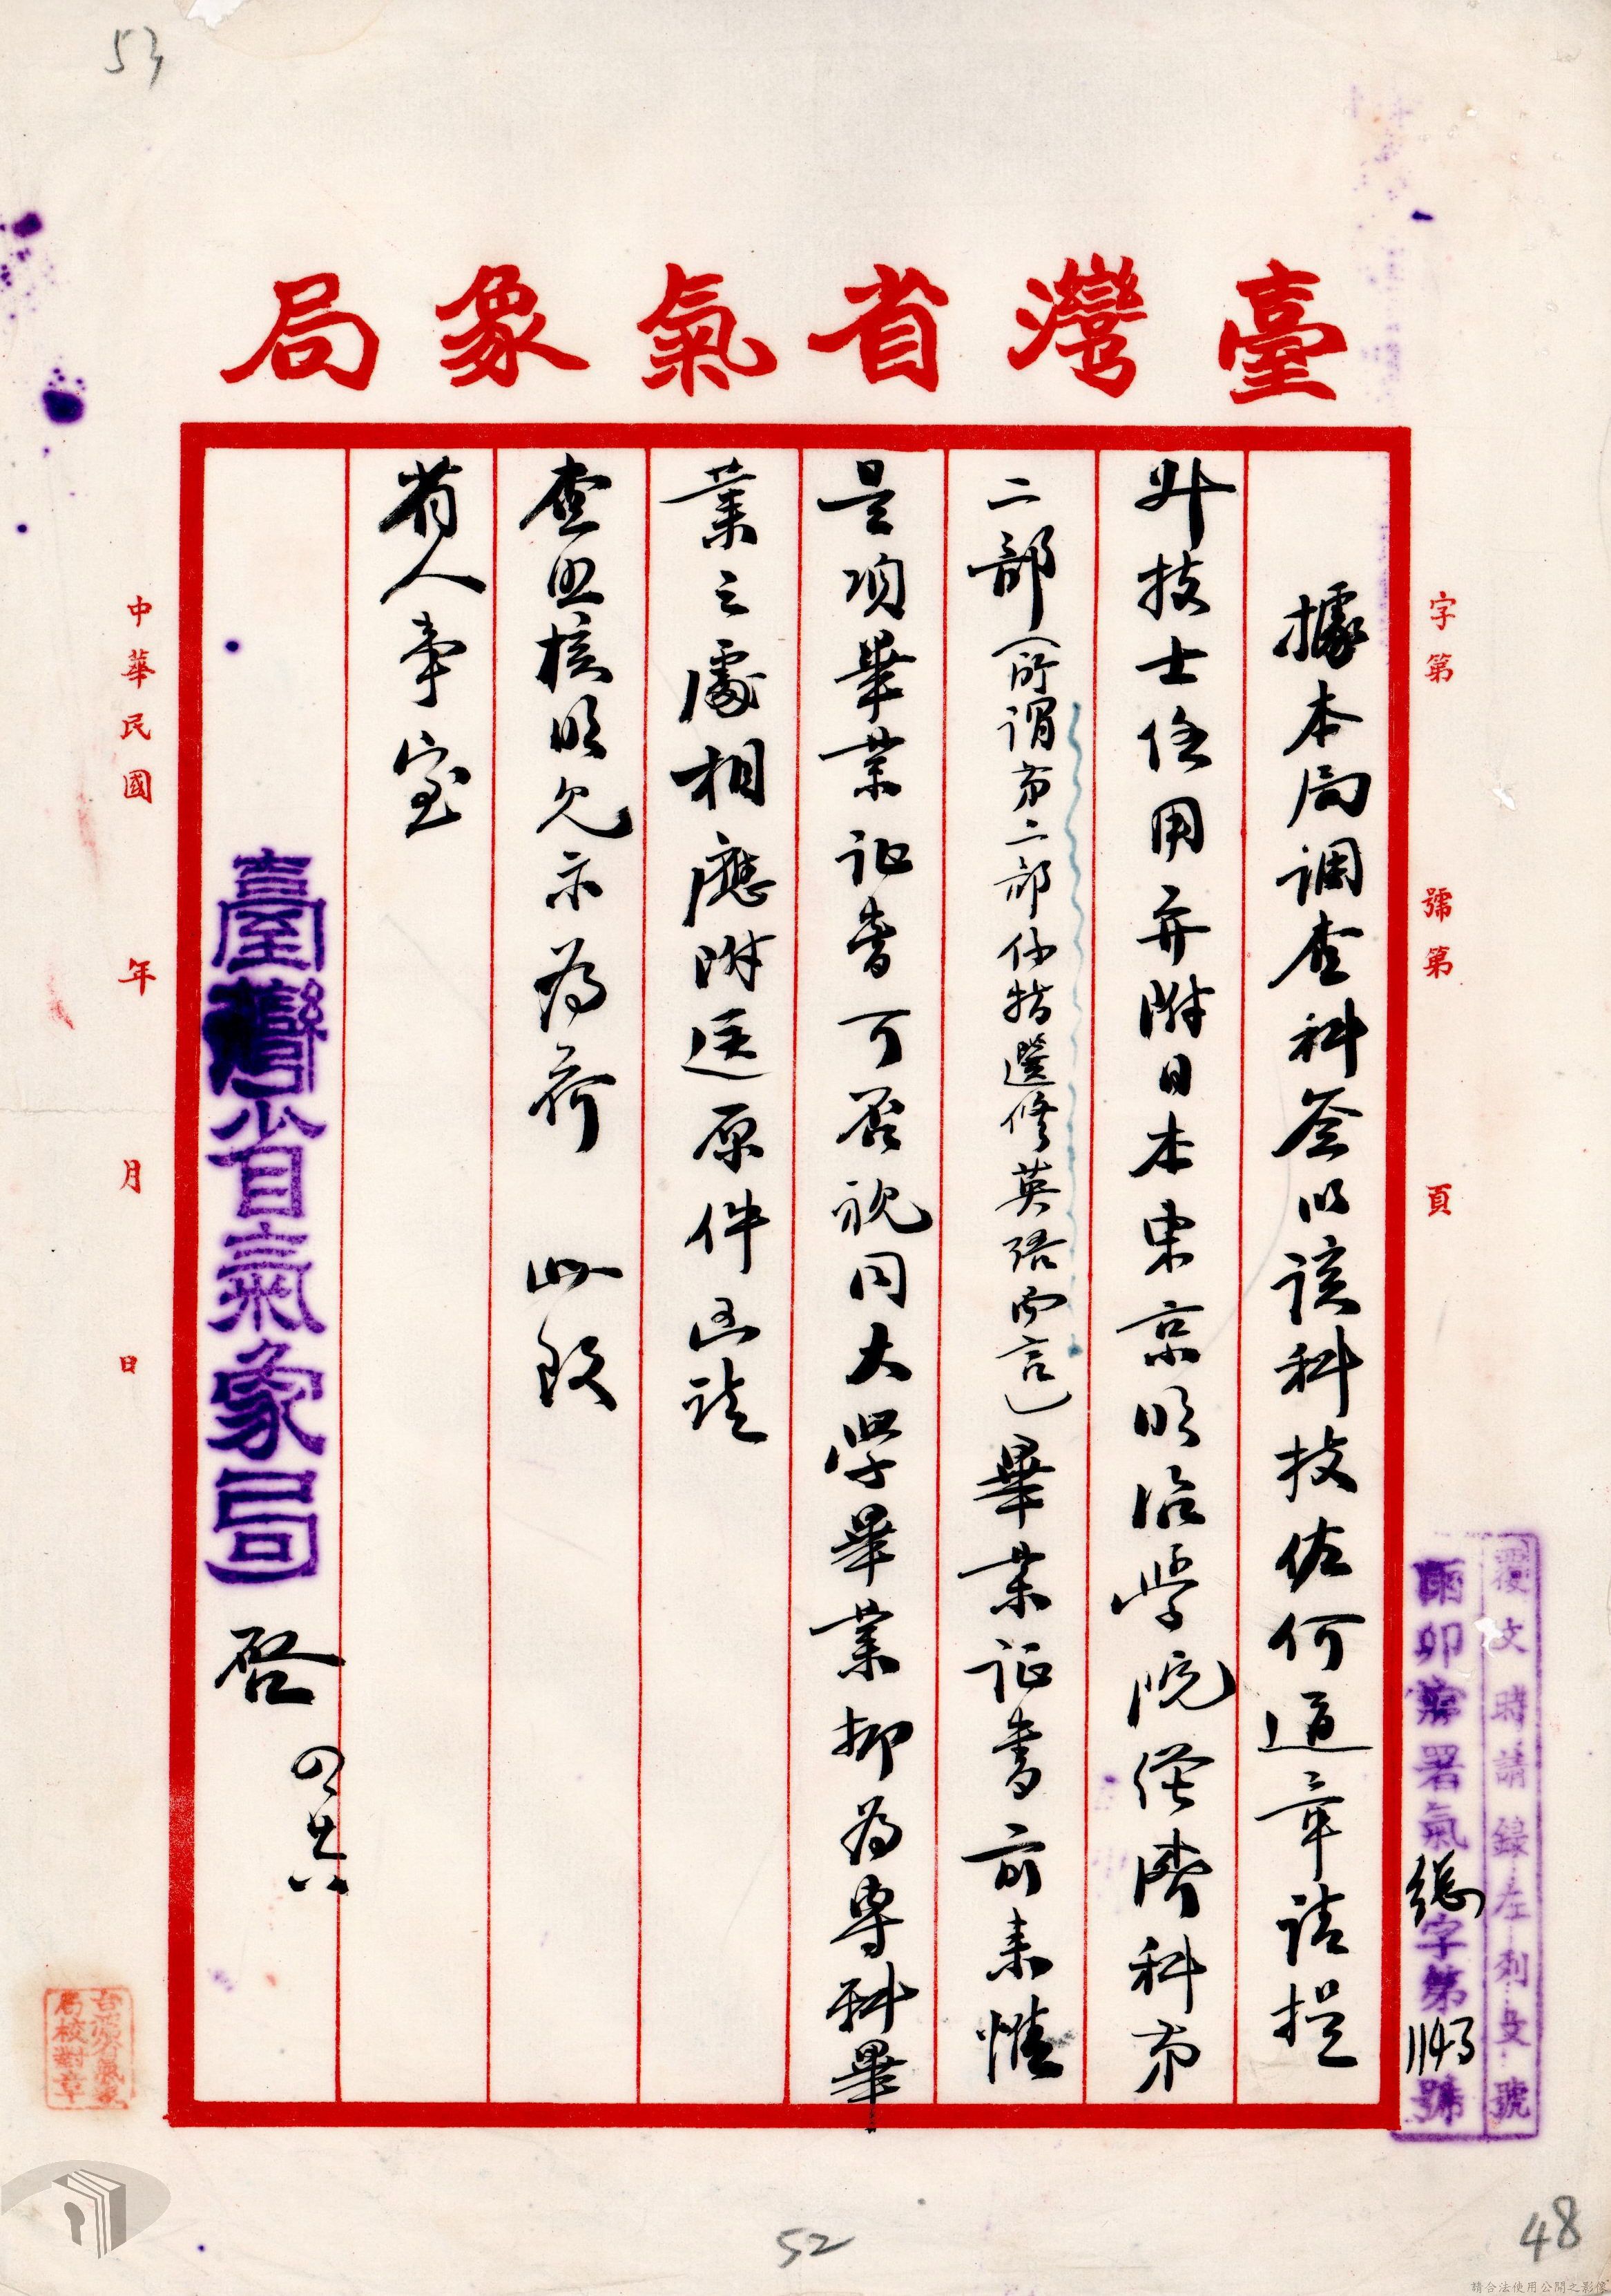 53
臺灣省氣象局
字第　號第　頁
覆文時請錄左列文號
卯　署氣總字第1143號
據本局調查科簽以該科技佐何適章請提
升技士任用并附日本東京明治學院經濟科第
二部（所謂第二部係指選修英語而言）畢業証書前來惟
是項畢業証書可否視同大學畢業抑為專科畢
業之處相應附送原件函請
查照核明見示為荷　此致
省人事室
臺灣省氣象局　啓　四廿六
中華民國　年　月　日
台灣省氣象局校對章
52
48
請合法使用公開之影像